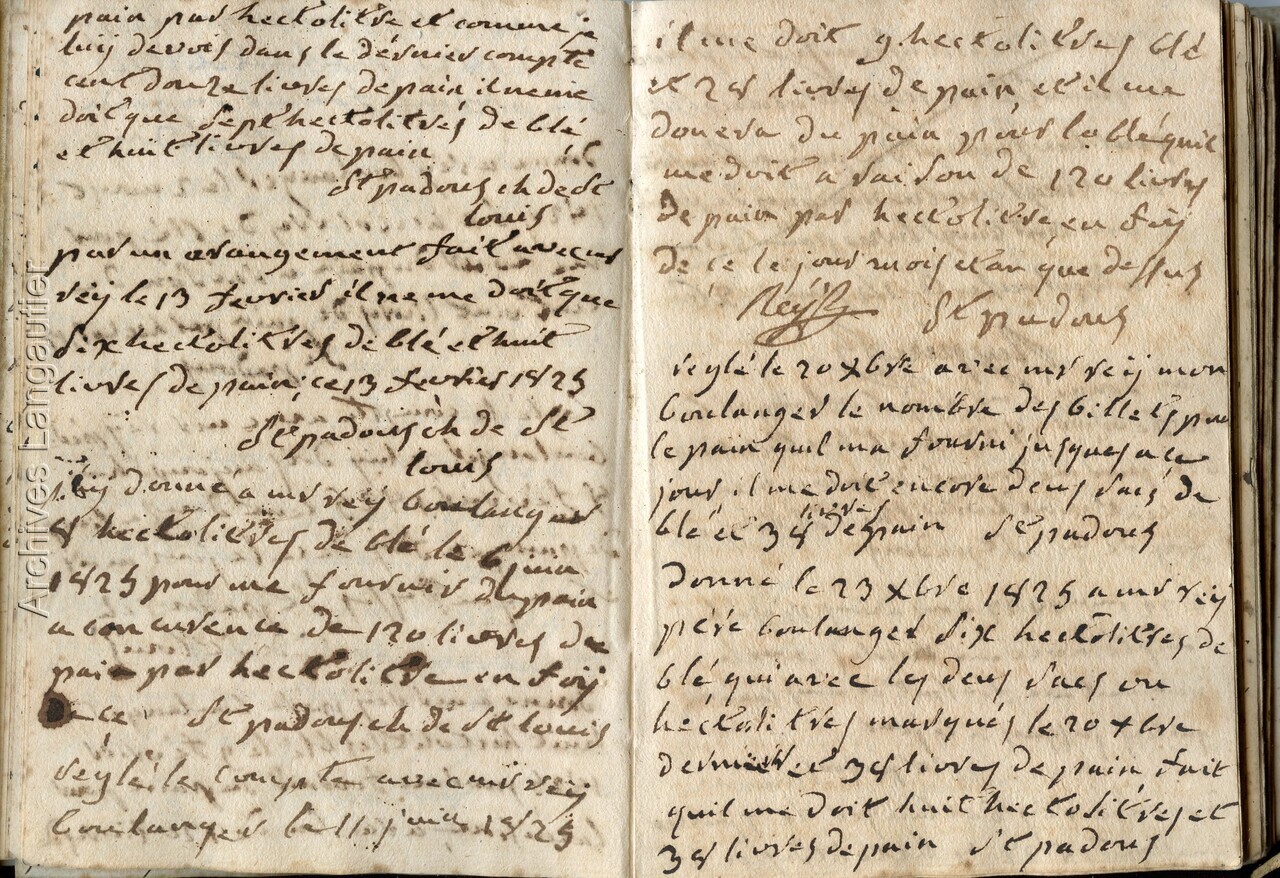 pain par hectolitre et comme je
luy devois dans le dérnier compte
cent douze livres de pain il ne me
doit que sept hectolitres de blé
et huit livres de pain
St padous ch de St
louis
par un arangement fait avec mr
rey le 13 fevrier il ne me doit que
six hectolitres de blé et huit
livres de pain, ce 13 fevrier 1825
St padous ch de St
louis
j'ay donné a mr rey boulanger
8 hectolitres de blé le 6 juin
1825 pour me fournir du pain
a concurence de 120 livres de
pain par hectolitre en foy
de ce St padous ch de St louis
reglé le compte avec mr rey
boulanger le 11 juin 1825
il me doit 9 hectolitres blé
et 28 livres de pain, et il me
donera du pain pour le blé quil
me doit a raison de 120 livres
de pain par hectolitre en foy
de ce le jour mois et an que dessus
Rey St padous
reglé le 20 xbre avec mr rey mon
boulanger le nombre des billets pour
le pain quil ma fourni jusques a ce
jour, il me doit encore deus sacs de
blé et 38 livres de pain St padous
Donné le 23 xbre 1825 a mr rey
pére boulanger six hectolitres de
blé qui avec les deus sacs ou
hectolitres marqués le 20 xbre
dernier et 38 livres de pain fait
quil me doit huit hectolitres et
38 livres de pain St padous
Archives Langautier